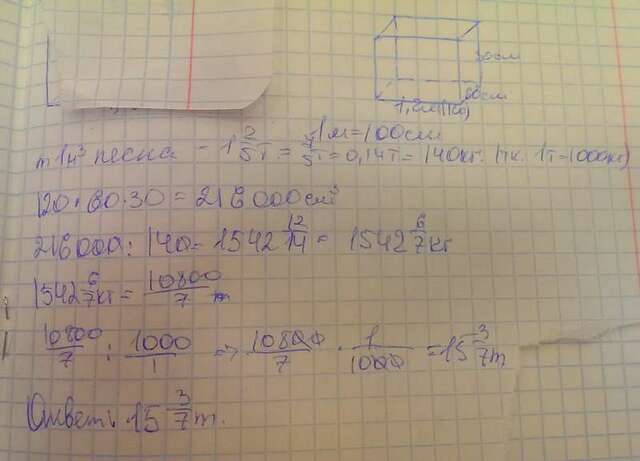 30см
60см
1,2м(120)
1м=100см
m 1м³ песка - 1 2/5 т = 7/5 т = 0,14т = 140кг. (т.к. 1т=1000кг)
120 · 60 · 30 = 216000см³
216000 : 140 = 1542 12/14 = 1542 6/7 кг
1542 6/7 кг = 10800/7 т
10800/7 : 1000/1 => 10800/7 · 1/1000 = 15 3/7 т
Ответ: 15 3/7 т.